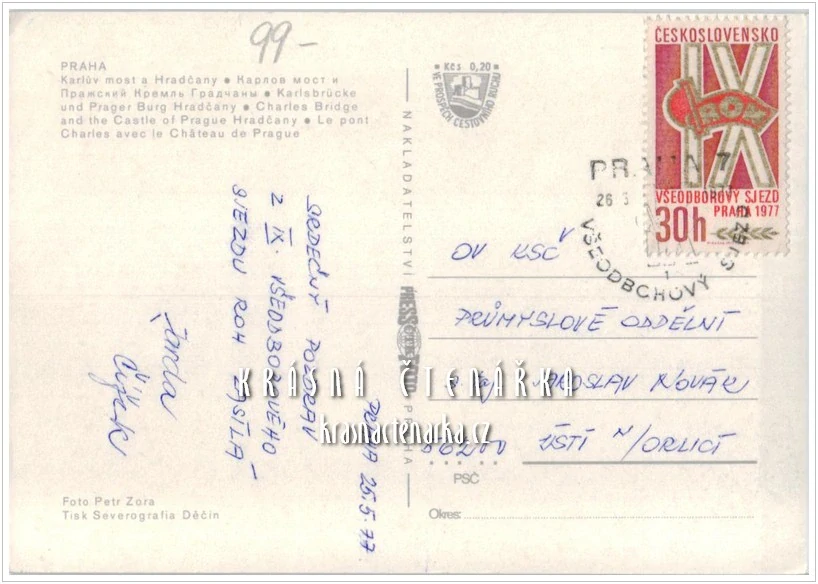 99-
PRAHA
Karlův most a Hradčany • Карлов мост и
Пражский Кремль Градчаны • Karlsbrücke
und Prager Burg Hradčany • Charles Bridge
and the Castle of Prague Hradčany • Le pont
Charles avec le Château de Prague
Kčs 0,20
VE PROSPĚCH CESTOVNÍHO RUCHU
ČESKOSLOVENSKO
IX
ROH
VŠEODBOROVÝ SJEZD
PRAHA 1977
30h
PRAHA 7
26 5
VŠEODBOROVÝ SJEZD
1
SRDEČNÝ POZDRAV
Z IX. VŠEODBOROVÉHO
SJEZDU ROH ZASÍLÁ
Čížek
PRAHA 25.5.77
NAKLADATELSTVÍ PRESSFOTO PRAHA
OV KSČ
PRŮMYSLOVÉ ODDĚLNÍ
JAROSLAV NOVÁK
56200 ÚSTÍ N/ORLICÍ
PSČ
Okres:
KRÁSNÁ ČTENÁŘKA
krasnactenarka.cz
Foto Petr Zora
Tisk Severografia Děčín